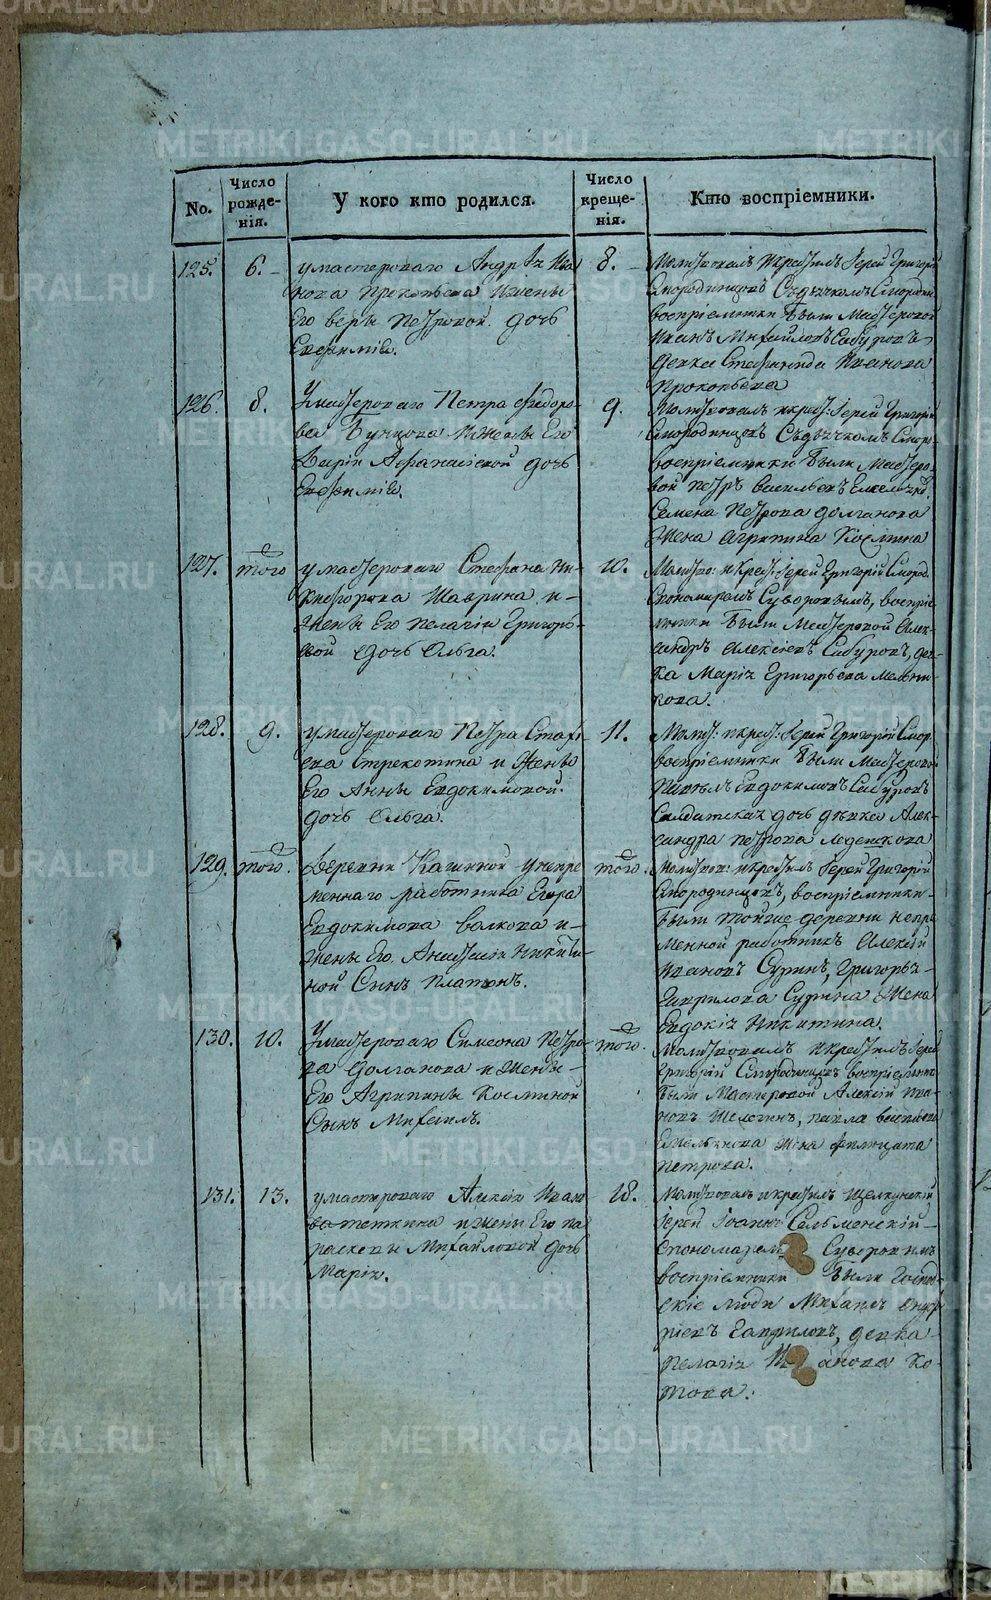 No.
Число
рожде-
нія.
У кого кто родился.
Число
креще-
нія.
Кто воспріемники.
125.
6.
у мастероваго Андрѣя Ива
нова Прокопьева и жены
Его Веры Петровой дочь
Евфимія.
8.
Молитвовалъ и крестилъ Іерей Григорій
Смородинцовъ Съ дьячкомъ Смородин
воспріемники были Мастеровой
Иванъ Михайловъ Сабуровъ
девка Стефанида Иванова
Прокопьева
126.
8.
У мастероваго Петра Федоро-
ва Бунцова и жены Его
Дарьи Афанасіевой дочь
Евфимія.
9.
Молитвовалъ и крест: Іерей Григорій
Смородинцовъ Съ дьячкомъ Смор:
воспріемники были Мастеро-
вой Петръ Васильевъ
Семена Петрова Долганова
жена Агрипина Космина
127.
того
у мастероваго Стефана Ни-
кифорова Шаврина и
жены Его Пелагіи Григорь-
вой дочь Ольга.
10.
Молитво: и Крест: Іерей Григорій Смород.
Спономаремъ Суворовымъ, воспріе-
мники были Мастеровой Алек-
сандръ Алексіевъ Сабуровъ, дев-
ка Марія Григорьева Мельни-
кова.
128.
9.
у мастероваго Петра
Стрекотина и жены
Его Анны Евдокимовой
дочь Ольга.
11.
Молит: и крест: Іерей Григорій Смор.
воспріемники были Мастерово
Евдокимовъ Сабуровъ
Салдатская дочь девка Алек-
сандра Петрова
129.
того.
деревни Кашиной у непре
меннаго работника Егора
Евдокимова Волкова и
жены Его Анастасіи Никити-
ной Сынъ Платонъ.
того.
Молитвов: и крестилъ Іерей Григорій
Смородинцовъ, воспріемники
были тойже деревни непре
менной работникъ Алексій
Ивановъ Суринъ, Григорья
Гаврилова Сурина жена
Евдокія Никитина.
130.
10.
У мастероваго Симеона Петро-
ва Долганова и жены
Его Агрипины Косминой
Сынъ Михаилъ.
того.
Молитвовалъ и крестилъ Іерей
Григорій Смородинцовъ воспріемники
были Мастеровой Алексій Ива-
новъ Павла Васильева
Емельянова жена Филицата
Петрова.
131.
13.
у мастероваго Алексія Ивано
ва Теткина и жены Его Па
расковьи Михайловой дочь
Марія.
18.
Молитвовалъ и крестилъ Щелкунскій
Іерей Іоаннъ Сельменскій
Спономаремъ Суворовымъ
воспріемники были Господ-
скіе люди Михаилъ Андр
ріевъ Гавриловъ, девка
Пелагія Ко-
това.
METRIKI.GASO-URAL.RU